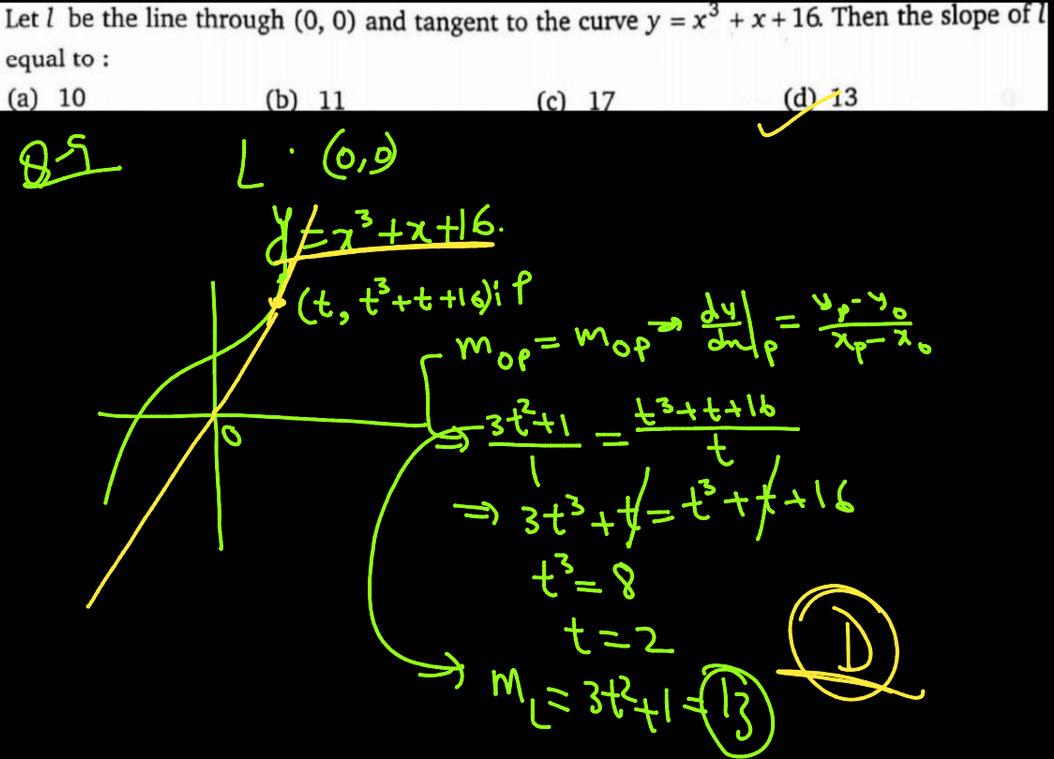 Let l be the line through (0, 0) and tangent to the curve y = x³ + x + 16. Then the slope of l
equal to :
(a) 10 (b) 11 (c) 17 (d) 13
L · (0,0)
y = x³+x+16.
(t, t³+t+16); P
m_OP = m_OP → dy/dx|_P = (y_P - y_0)/(x_P - x_0)
⇒ (3t²+1)/1 = (t³+t+16)/t
O
⇒ 3t³+t = t³+t+16
t³ = 8
t = 2
D
m_L = 3t²+1 = 13